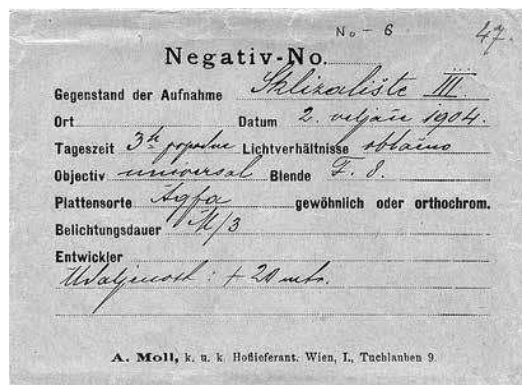 No - 6
47.
Negativ-No.
Gegenstand der Aufnahme Sklizalište III.
Ort Datum 2. veljače 1904.
Tageszeit 3h popodne Lichtverhältnisse oblačno
Objectiv universal Blende F. 8.
Plattensorte Agfa gewöhnlich oder orthochrom.
Belichtungsdauer M/3
Entwickler
Udaljenost : + 20 mts.
A. Moll, k. u. k. Hoflieferant. Wien, I., Tuchlauben 9.